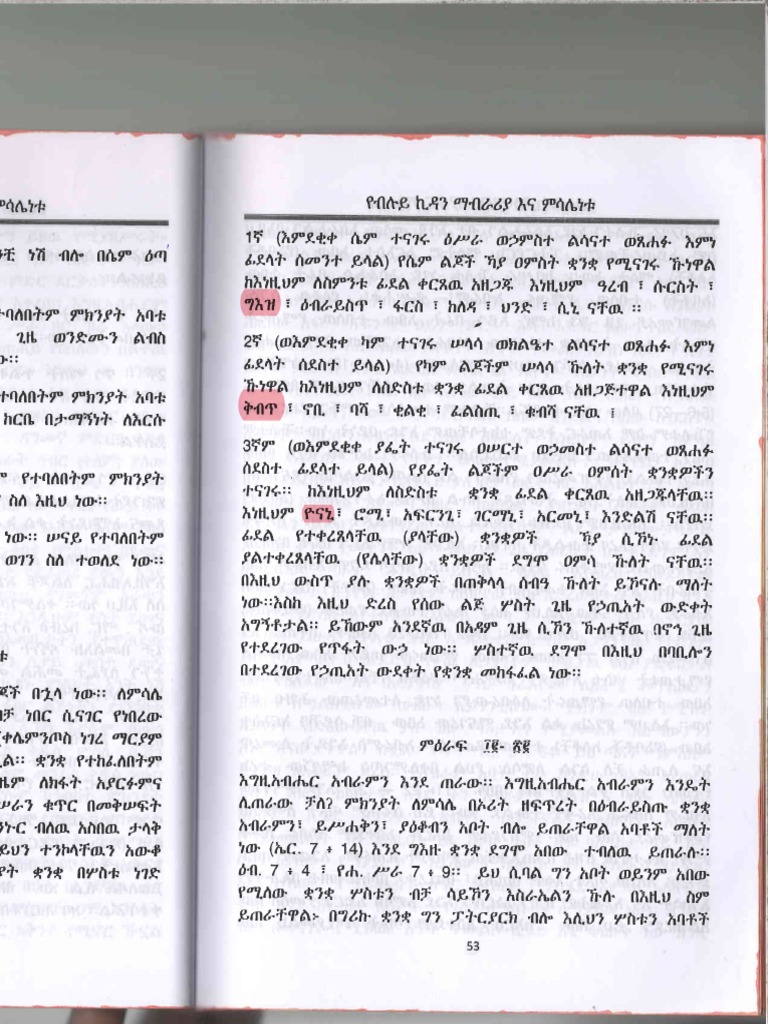 ምሳሌነቱ
ነሽ ብሎ በሴም ዕጣ
ተባለበትም ምክንያት አባቱ
ጊዜ ወንድሙን ልብስ
ተባለበትም ምክንያት አባቱ
ከርቤ በታማኝነት ለእርሱ
የተባለበትም ምክንያት
ስለ እዚህ ነው።
ነው። ሠናይ የተባለበትም
ወገን ስለ ተወለደ ነው።
በኋላ ነው። ለምሳሌ
ነበር ሲናገር የነበረው
ነገረ ማርያም
ቋንቋ የተከፈለበትም
ለክፋት አያርፉምና
ቁጥር በመቅሠፍት
ብለዉ አስበዉ ታላቅ
ተንኮላቸዉን አውቆ
ቋንቋ በሦስቱ ነገድ
የብሉይ ኪዳን ማብራሪያ እና ምሳሌነቱ
1ኛ (እምደቂቀ ሴም ተናገሩ ዕሥራ ወኃምስተ ልሳናተ ወጸሐፉ እምነ
ፊደላት ሰመንተ ይላል) የሴም ልጆች ኻያ ዐምስት ቋንቋ የሚናገሩ ኹነዋል
ከእነዚህም ለስምንቱ ፊደል ቀርጸዉ አዘጋጁ እነዚህም ዓረብ ፣ ሱርስት ፣
ግእዝ ፣ ዕብራይስጥ ፣ ፋርስ ፣ ከለዳ ፣ ህንድ ፣ ሲኒ ናቸዉ ።
2ኛ (ወእምደቂቀ ካም ተናገሩ ሠላሳ ወክልዔተ ልሳናተ ወጸሐፉ እምነ
ፊደላት ሰደስተ ይላል) የካም ልጆችም ሠላሳ ኹለት ቋንቋ የሚናገሩ
ኹነዋል ከእነዚህም ለስድስቱ ቋንቋ ፊደል ቀርጸዉ አዘጋጅተዋል እነዚህም
ቅብጥ ፣ ኖቢ ፣ ባሻ ፣ ቂልቂ ፣ ፈልስጢ ፣ ቁብሻ ናቸዉ ፤
3ኛም (ወእምደቂቀ ያፌት ተናገሩ ዐሠርተ ወኃመስተ ልሳናተ ወጸሐፉ
ሰደስተ ፊደላተ ይላል) የያፌት ልጆችም ዐሥራ ዐምሰት ቋንቋዎችን
ተናገሩ። ከእነዚህም ለስድስቱ ቋንቋ ፊደል ቀርጸዉ አዘጋጁላቸዉ።
እነዚህም ዮናኒ፣ ሮሚ፣ አፍርንጊ፣ ገርማኒ፣ አርመኒ፣ እንድልሽ ናቸዉ።
ፊደል የተቀረጸላቸዉ (ያላቸው) ቋንቋዎች ኻያ ሲኾኑ ፊደል
ያልተቀረጸላቸዉ (የሌላቸው) ቋንቋዎች ደግሞ ዐምሳ ኹለት ናቸዉ።
በእዚህ ውስጥ ያሉ ቋንቋዎች በጠቅላላ ሰብዓ ኹለት ይኾናሉ ማለት
ነው።እስከ እዚህ ድረስ የሰው ልጅ ሦስት ጊዜ የኃጢአት ውድቀት
አግኝቶታል። ይኸውም አንደኛዉ በአዳም ጊዜ ሲኾን ኹለተኛዉ በኖኅ ጊዜ
የተደረገው የጥፋት ውኃ ነው። ሦስተኛዉ ደግሞ በእዚህ በባቢሎን
በተደረገው የኃጢአት ውደቀት የቋንቋ መከፋፈል ነው።
እግዚአብሔር አብራምን እንደ ጠራው። እግዚአብሔር አብራምን እንዴት
ሊጠራው ቻለ? ምክንያት ለምሳሌ በኦሪት ዘፍጥረት በዕብራይስጡ ቋንቋ
አብራምን፣ ይሥሐቅን፣ ያዕቆብን አቦት ብሎ ይጠራቸዋል አባቶች ማለት
ነው (ኤር. 7 ፥ 14) እንደ ግእዙ ቋንቋ ደግሞ አበው ተብለዉ ይጠራሉ።
ዕብ. 7 ፥ 4 ፤ የሐ. ሥራ 7 ፥ 9። ይህ ሲባል ግን አቦት ወይንም አበው
የሚለው ቋንቋ ሦስቱን ብቻ ሳይኾን እስራኤልን ኹሉ በእዚህ ስም
ይጠራቸዋል፦ በግሪኩ ቋንቋ ግን ፓትርያርክ ብሎ እሊህን ሦስቱን አባቶች
53